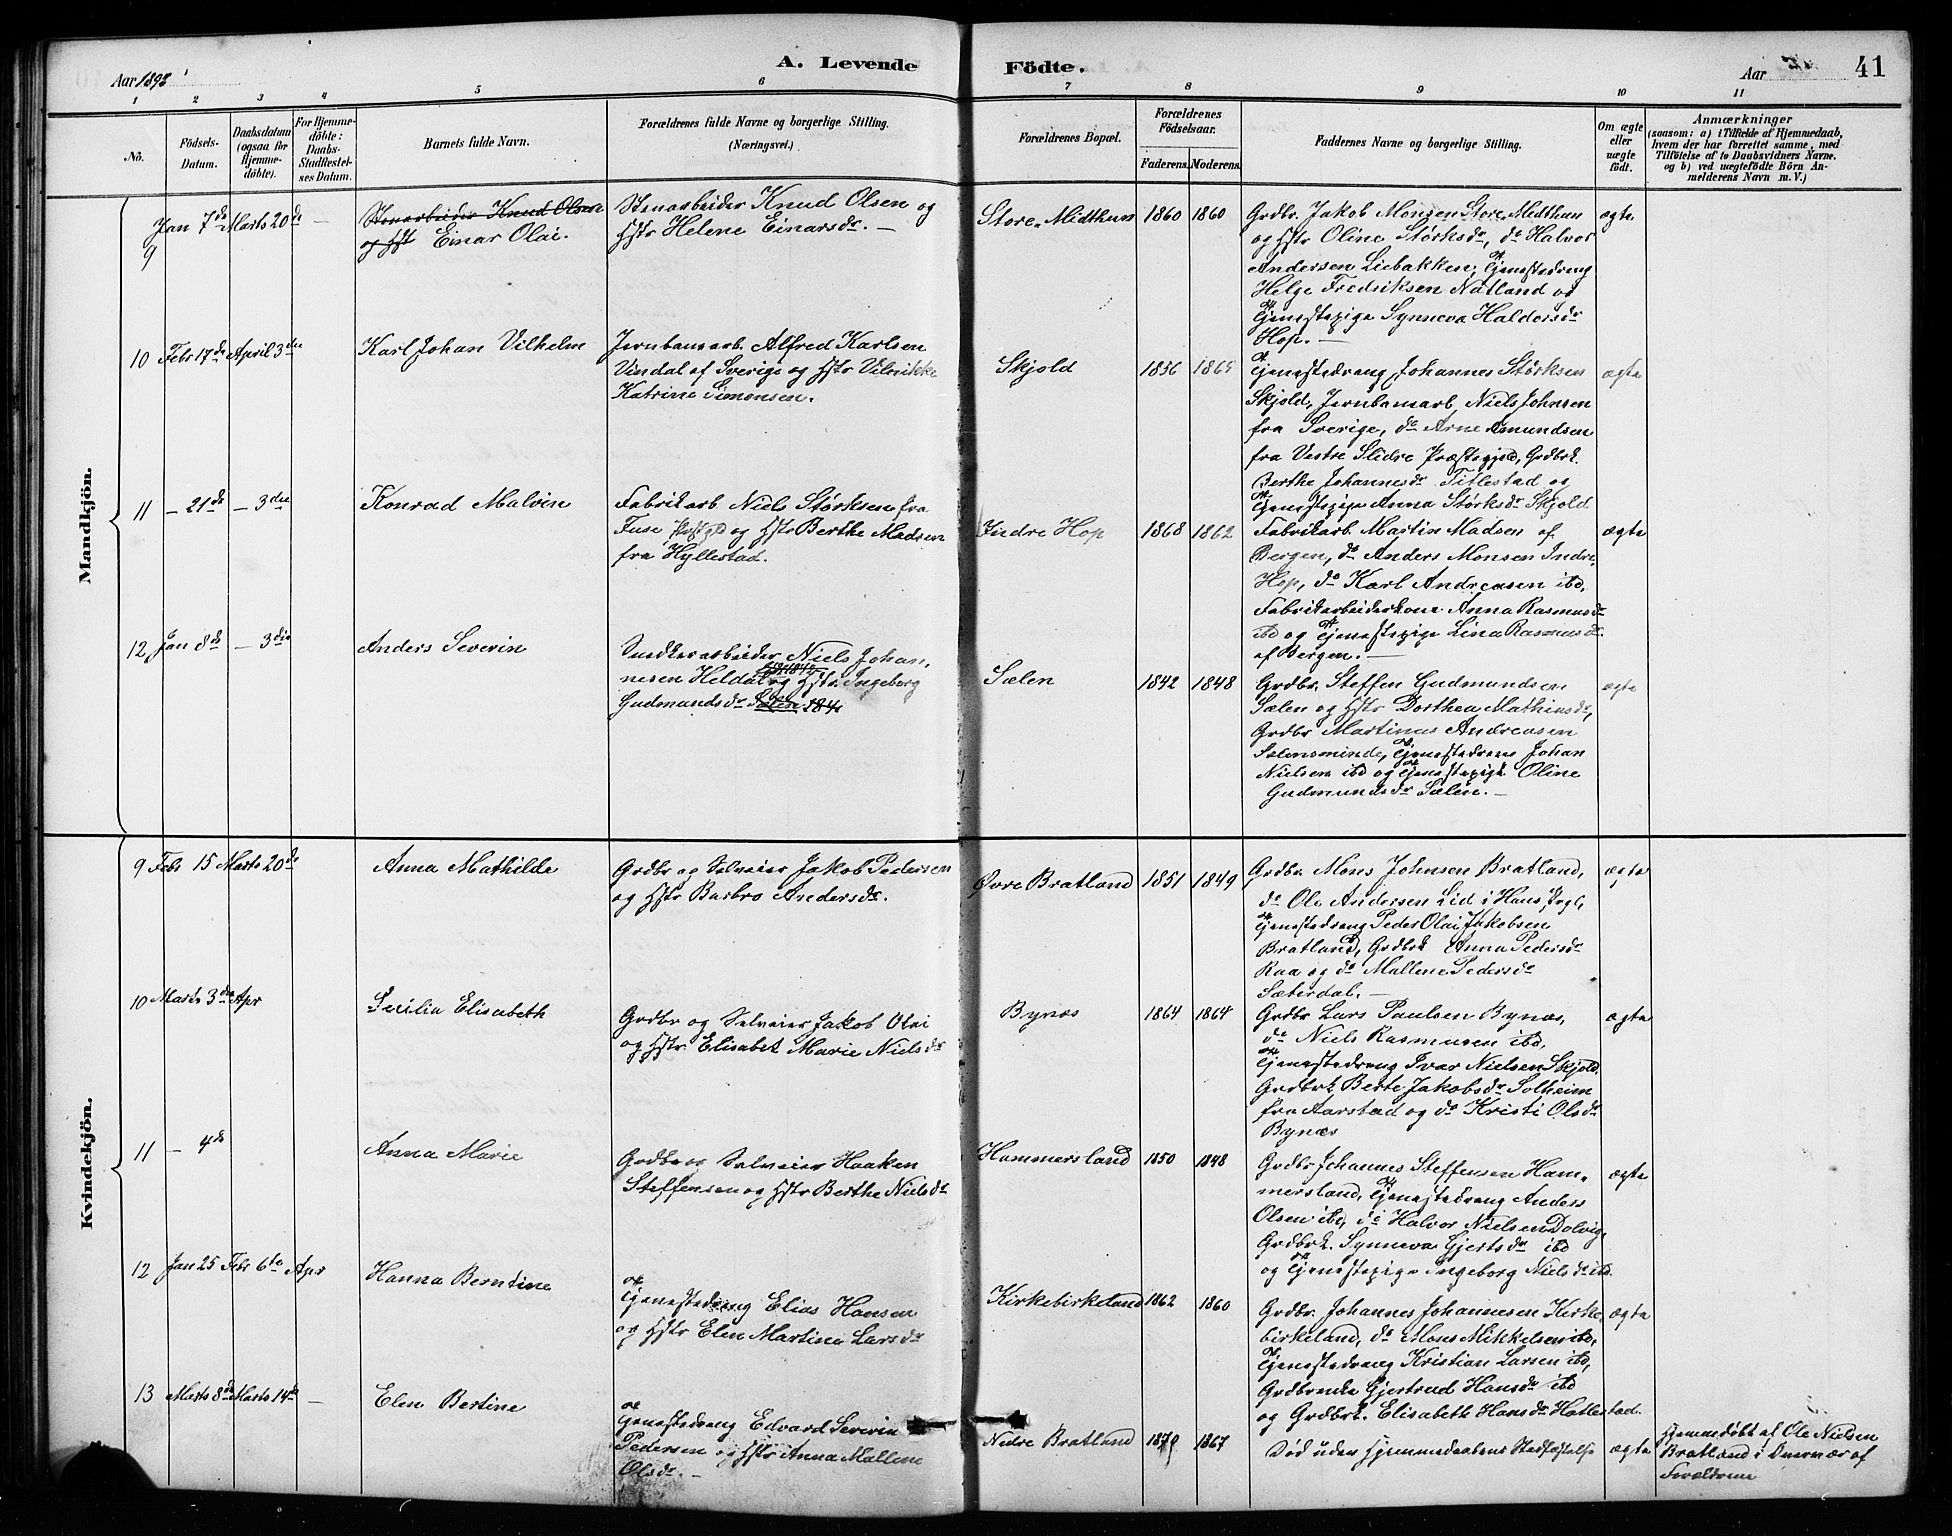 Aar 1892
A. Levende
Födte.
Aar
41
1 2 3 4 5 6 7 8 9 10 11
No.
Födsels-
Datum.
Daabsdatum
(ogsaa for
Hjemme-
döbte).
For Hjemme-
döbte:
Daabs-
Stadfæstel-
ses Datum.
Barnets fulde Navn.
Forældrenes fulde Navne og borgerlige Stilling.
(Næringsvei.)
Forældrenes Bopæl.
Forældrenes
Födselsaar.
Faderens. Moderens.
Faddernes Navne og borgerlige Stilling.
Om ægte
eller
uægte
födt.
Anmærkninger
(saasom: a) i Tilfælde af Hjemmedaab,
hvem der har forrettet samme, med
Tilföielse af to Daabsvidners Navne,
og b) ved uægtefödte Börn An-
melderens Navn m. V.)
Mandkjön.
9 Jan 7de Marts 20de —
Stenarbeider Knud Olsen
og Hstr Einar Olai.
Stenarbeider Knud Olsen og
Hstr Helene Einarsdr. —
Store Midthun 1860 1860
Grdbr. Jakob Monsen Store Midthun
og Hstr Oline Størksdr, do Halvor
Andersen Liebakken, Tjenestedreng
Helge Fredriksen Natland og
Tjenestepige Synneva Haldorsdr
Hop. —
ægte
10 Febr 17de April 3die
Karl Johan Vilhelm
Jernbanearb. Alfred Karlsen
Vindal af Sverige og Hstr Vilrikke
Katrine Simonsen.
Skjold 1856 1865
Tjenestedreng Johannes Størksen
Skjold, Jernbanearb. Niels Johnsen
fra Sverige, do Arne Amundsen
fra Vestre Slidre Præstegjeld, Grdbrk.
Berthe Johannesdr Titlestad og
Tjenestepige Anna Størksdr Skjold
ægte
11 — 21de — 3die
Konrad Malvin
Fabrikarb Niels Størksen fra
Fuse og Hstr Berthe Madsen
fra Hyllestad.
Indre Hop 1868 1862
Fabrikarb. Martin Madsen af
Bergen, do Anders Monsen Indre
Hop, do Karl Andreasen ibd,
Fabrikarbeiderkone Anna Rasmusdr
ibd og Tjenestepige Lina Rasmusdr
af Bergen. —
ægte
12 Jan 8de — 3die
Anders Severin
Snedkerarbeider Niels Johan-
nesen Heldal og Hstr Ingeborg
Gudmundsdr Sælen 184
Sælen 1842 1848
Grdbr. Steffen Gudmundsen
Sælen og Hstr Dorthea Mathiasdr,
Grdbr Martinus Andreasen
Sælensminde, Tjenestedreng Johan
Nielsen ibd og Tjenestepige Oline
Gudmundsdr Sælen. —
ægte
Kvindekjön.
9 Febr 15 Marts 20de
Anna Mathilde
Grdbr og Selveier Jakob Pedersen
og Hstr Barbro Andersdr.
Øvre Bratland 1851 1849
Grdbr. Mons Johnsen Bratland,
do Ole Andersen Lid i Haus Pgl,
Tjenestedreng Peder Olai Jakobsen
Bratland, Grdbrk Anna Pedersdr
Raa og do Mallene Pedersdr
Sæterdal. —
ægte
10 Marts 3die Apr
Cecilia Elisabeth
Grdbr og Selveier Jakob Olai
og Hstr. Elisabet Marie Nielsdr
Bynæs 1864 1864
Grdbr Lars Paulsen Bynæs,
do Niels Rasmusen ibd,
Tjenestedreng Ivar Nielsen Skjold.
Grdbrk Berte Jakobsdr Solheim
fra Aarstad og do Kristi Olsdr
Bynæs
ægte
11 — 4de
Anna Marie
Grdbr og Selveier Haaken
Steffensen og Hstr Berthe Nielsdr
Hammersland 1850 1848
Grdbr Johannes Steffensen Ham-
mersland, Tjenestedreng Anders
Olsen ibd, do Halvor Nielsen Dolvig,
Grdbrk. Synneva Gjertsdr ibd
og Tjenestepige Ingeborg Nielsdr ibd.
ægte
12 Jan 25 Febr 6te Apr
Hanna Berntine
Tjenestedreng Elias Hansen
og Hstr Elen Martina Larsdr
Kirkebirkeland 1862 1860
Grdbr. Johannes Johannesen Kirke-
birkeland, do Mons Mikkelsen ibd,
Tjenestedreng Kristian Larsen ibd,
Grdbrenke Gjertrud Hansdr ibd
og Grdbrk. Elisabeth Hansdr Hatlestad.
ægte
13 Marts 8de Marts 14de —
Elen Bertine
Tjenestedreng Edvard Severin
Pedersen og Hstr Anna Mallene
Olsdr. —
Nedre Bratland 1870 1867
Død uden Hjemmedaabens Stadfæstelse
ægte
Hjemmedøbt af Ole Nielsen
Bratland i Overvær af
Forældrene